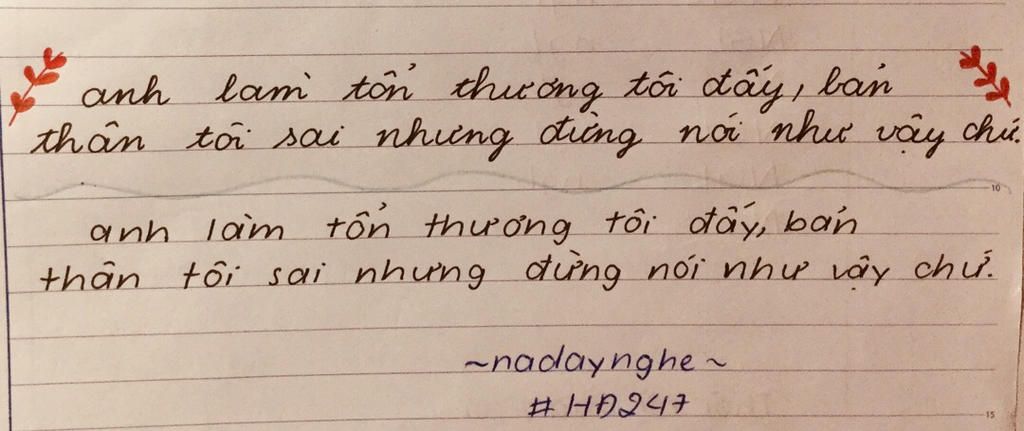 anh làm tổn thương tôi đấy, bản
thân tôi sai nhưng đừng nói như vậy chứ.
10
anh làm tổn thương tôi đấy, bản
thân tôi sai nhưng đừng nói như vậy chứ.
~nadaynghe~
#HĐ247
15